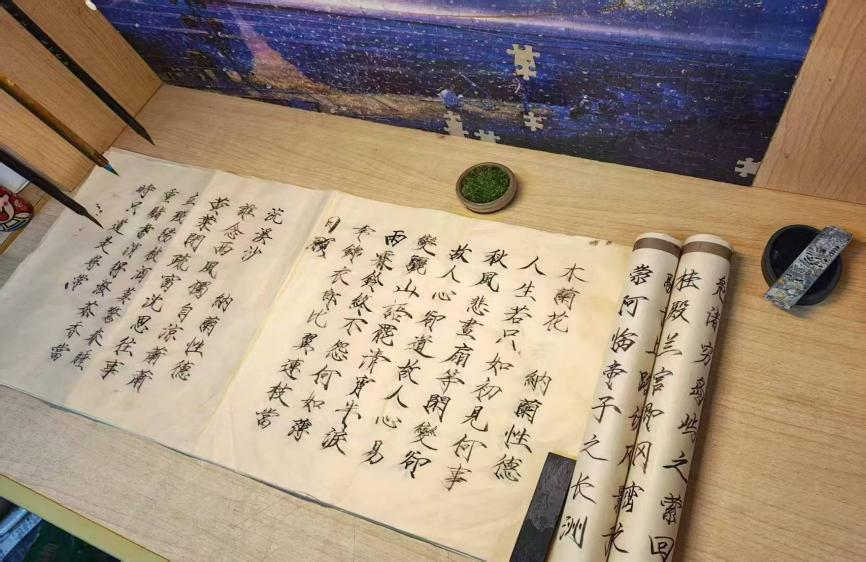 凫渚穷岛屿之萦回
桂殿兰宫即冈峦
崇阿临帝子之长洲
木蘭花 納蘭性德
人生若只如初見何事
秋風悲畫扇等閑變卻
故人心卻道故人心易
變驪山語罷清宵半淚
雨霖鈴終不怨何如薄
倖錦衣郎比翼連枝當
日願
浣溪沙
納蘭性德
誰念西風獨自涼蕭蕭
黃葉閉疏窗沈思往事
立殘陽被酒莫驚春睡
重賭書消得潑茶香當
時只道是尋常